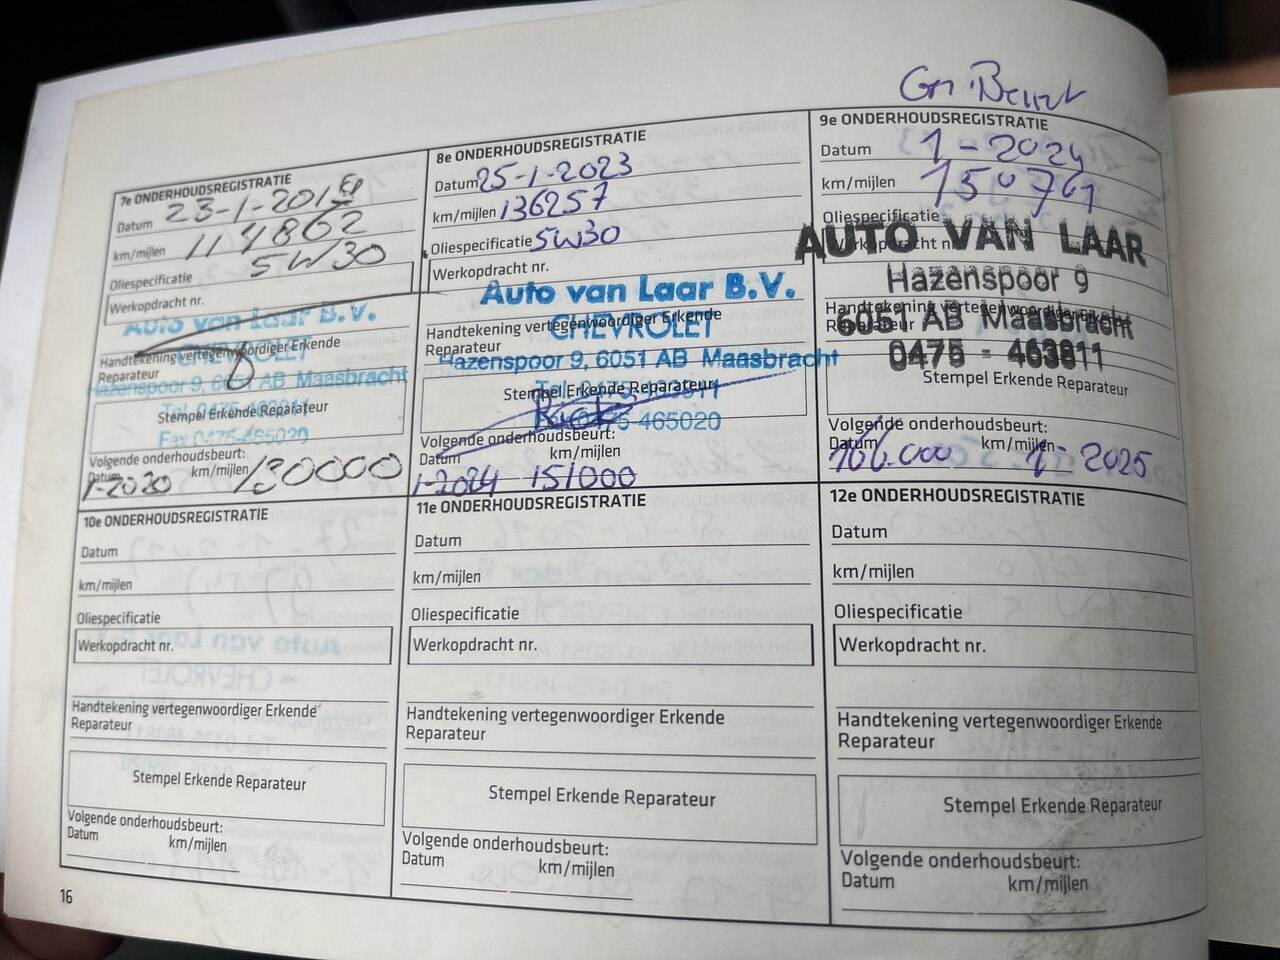 7e ONDERHOUDSREGISTRATIE
Datum 23-1-2019
km/mijlen 114862
Oliespecificatie 5W30
Werkopdracht nr.
Auto van Laar B.V.
CHEVROLET
Handtekening vertegenwoordiger Erkende
Reparateur
Hazenspoor 9, 6051 AB Maasbracht
Stempel Erkende Reparateur
Tel. 0475-463811
Fax 0475-465020
Volgende onderhoudsbeurt:
Datum km/mijlen
1-2020 130000
8e ONDERHOUDSREGISTRATIE
Datum 25-1-2023
km/mijlen 136257
Oliespecificatie 5W30
Werkopdracht nr.
Auto van Laar B.V.
Handtekening vertegenwoordiger Erkende
CHEVROLET
Reparateur
Hazenspoor 9, 6051 AB Maasbracht
Stempel Erkende Reparateur
Tel. 0475-463811
Fax 0475-465020
Volgende onderhoudsbeurt:
Datum km/mijlen
1-2024 151000
Gr. Beurt
9e ONDERHOUDSREGISTRATIE
Datum 1-2024
km/mijlen 150761
Oliespecificatie
Werkopdracht nr.
AUTO VAN LAAR
Hazenspoor 9
Handtekening vertegenwoordiger Erkende
Reparateur
6051 AB Maasbracht
0475 - 463811
Stempel Erkende Reparateur
Volgende onderhoudsbeurt:
Datum km/mijlen
166.000 1-2025
10e ONDERHOUDSREGISTRATIE
Datum
km/mijlen
Oliespecificatie
Werkopdracht nr.
Handtekening vertegenwoordiger Erkende
Reparateur
Stempel Erkende Reparateur
Volgende onderhoudsbeurt:
Datum km/mijlen
11e ONDERHOUDSREGISTRATIE
Datum
km/mijlen
Oliespecificatie
Werkopdracht nr.
Handtekening vertegenwoordiger Erkende
Reparateur
Stempel Erkende Reparateur
Volgende onderhoudsbeurt:
Datum km/mijlen
12e ONDERHOUDSREGISTRATIE
Datum
km/mijlen
Oliespecificatie
Werkopdracht nr.
Handtekening vertegenwoordiger Erkende
Reparateur
Stempel Erkende Reparateur
Volgende onderhoudsbeurt:
Datum km/mijlen
16